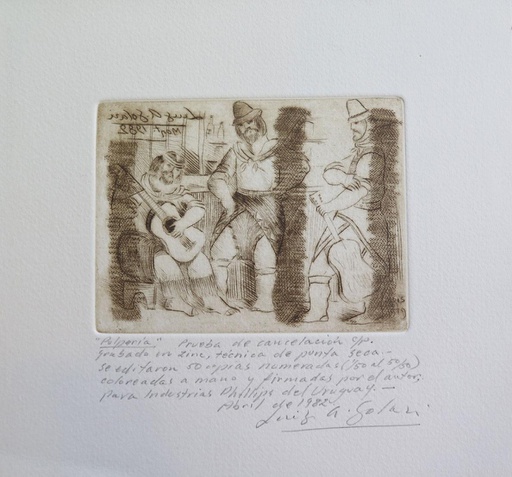 Luis A Solari
Mayo 1982
"Pulpería" Prueba de cancelación
grabado en zinc, técnica de punta seca.-
se editaron 50 copias numeradas (1/50 al 50/50)
coloreadas a mano y firmadas por el autor,
para Industrias Phillips del Uruguay. —
Abril de 1982
Luis A. Solari